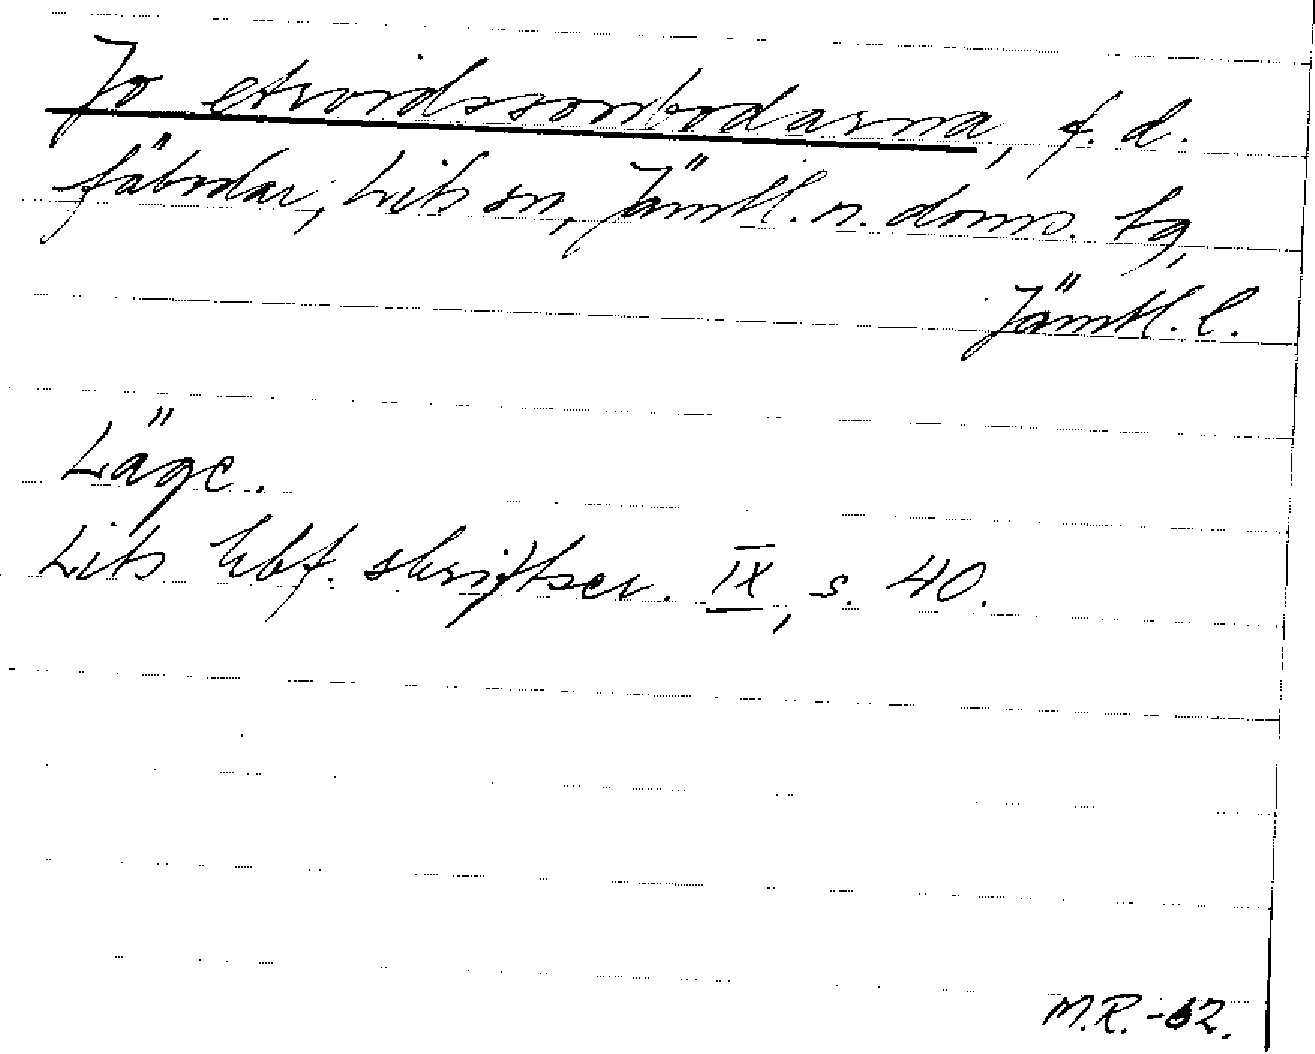 Jo Arvidssonbodarna, f. d.
fäbodar, Lits sn, Jämtl. n. doms. tg,
Jämtl. l.
Läge.
Lits hbf. skriftser. IX, s. 40.
M.R. -62.